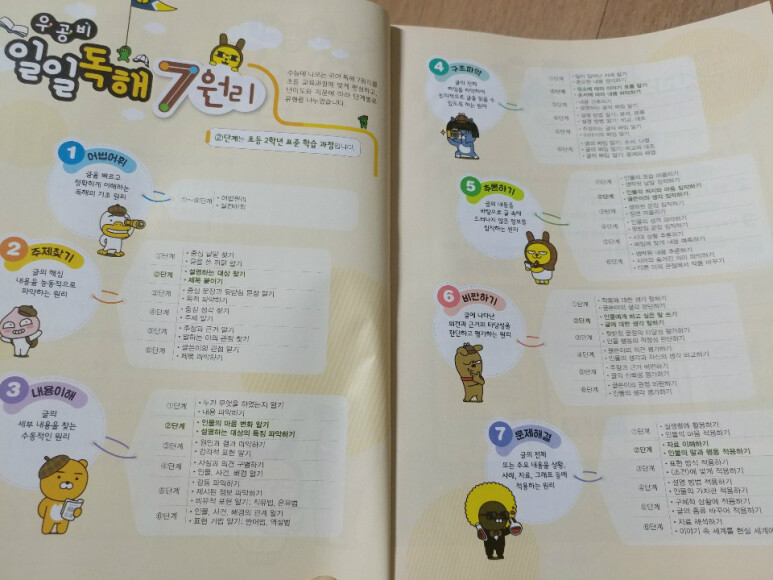 우공비
일일독해 7원리
수능에 나오는 국어 독해 7원리를
초등 교육과정에 맞게 편성하고,
난이도와 지문에 따라 단계별로
유형을 나누었습니다.
②단계는 초등 2학년 표준 학습 과정입니다.
1 어법어휘
글을 빠르고
정확하게 이해하는
독해의 기초 원리
①~⑥단계
• 어법원리
• 실전어휘
2 주제찾기
글의 핵심
내용을 능동적으로
파악하는 원리
①단계 • 중심 낱말 찾기
• 글을 쓴 까닭 알기
②단계 • 설명하는 대상 찾기
• 제목 붙이기
③단계 • 중심 문장과 뒷받침 문장 알기
• 특히 파악하기
④단계 • 중심 생각 찾기
• 주제 알기
⑤단계 • 주장과 근거 알기
• 말하는 이의 관점 찾기
⑥단계 • 글쓴이의 관점 알기
• 제목 파악하기
3 내용이해
글의
세부 내용을 찾는
수동적인 원리
①단계 • 누가 무엇을 하였는지 알기
• 내용 파악하기
②단계 • 인물의 마음 변화 알기
• 설명하는 대상의 특징 파악하기
③단계 • 원인과 결과 파악하기
• 감각적 표현 알기
④단계 • 사실과 의견 구별하기
• 인물, 사건, 배경 알기
⑤단계 • 갈등 파악하기
• 제시된 정보 파악하기
• 비유적 표현 알기: 직유법, 은유법
⑥단계 • 인물, 사건, 배경의 관계 알기
• 표현 기법 알기: 반어법, 역설법
4 구조파악
글의 전체
짜임을 파악하여
논리적으로 글을 읽을 수
있도록 하는 원리
①단계 • 일이 일어난 차례 알기
②단계 • 장소에 따라 이야기 흐름 알기
• 순서에 따라 내용 파악하기
③단계 • 내용 간추리기
• 설명하는 글의 짜임 알기
④단계
⑤단계 • 주장하는 글의 짜임 알기
• 이야기의 짜임 알기
⑥단계
5 추론하기
글의 내용을
바탕으로 글 속에
드러나지 않은 정보를
짐작하는 원리
①단계 • 인물의 모습 떠올리기
• 생략된 낱말 짐작하기
②단계 • 인물의 처지와 마음 짐작하기
• 글쓴이의 생각 짐작하기
③단계 • 생략된 문장 짐작하기
• 장면 떠올리기
④단계 • 인물의 성격 파악하기
• 뒷받침 문장 짐작하기
⑤단계 • 시대 상황 추론하기
• 짜임에 맞게 내용 예측하기
⑥단계 • 생략된 내용 추론하기
• 시어의 숨겨진 의미 파악하기
• 다른 이의 관점에서 작품 바꾸기
6 비판하기
글에 나타난
의견과 근거의 타당성을
판단하고 평가하는 원리
①단계 • 작품에 대한 생각 말하기
• 글쓴이의 생각 판단하기
②단계 • 인물에게 하고 싶은 말 쓰기
• 글에 대한 생각 말하기
③단계 • 뒷받침 문장의 타당성 평가하기
• 인물 행동의 적절성 판단하기
④단계 • 글쓴이의 의견 평가하기
• 인물의 생각과 자신의 생각 비교하기
⑤단계 • 주장과 근거 비판하기
• 글의 신뢰성 평가하기
⑥단계 • 글쓴이의 관점 비판하기
• 인물의 생각 평가하기
7 문제해결
글의 전체
또는 주요 내용을 상황,
사례, 자료, 그래프 등에
적용하는 원리
①단계 • 실생활에 활용하기
• 인물의 마음 적용하기
②단계 • 자료 이해하기
• 인물의 말과 행동 적용하기
③단계 • 표현 방식 적용하기
• 〈조건〉에 맞게 적용하기
④단계 • 설명 방법 적용하기
• 인물의 가치관 적용하기
⑤단계 • 구체적 상황에 적용하기
• 글의 종류 바꾸어 적용하기
⑥단계 • 자료 해석하기
• 이야기 속 세계를 현실 세계에